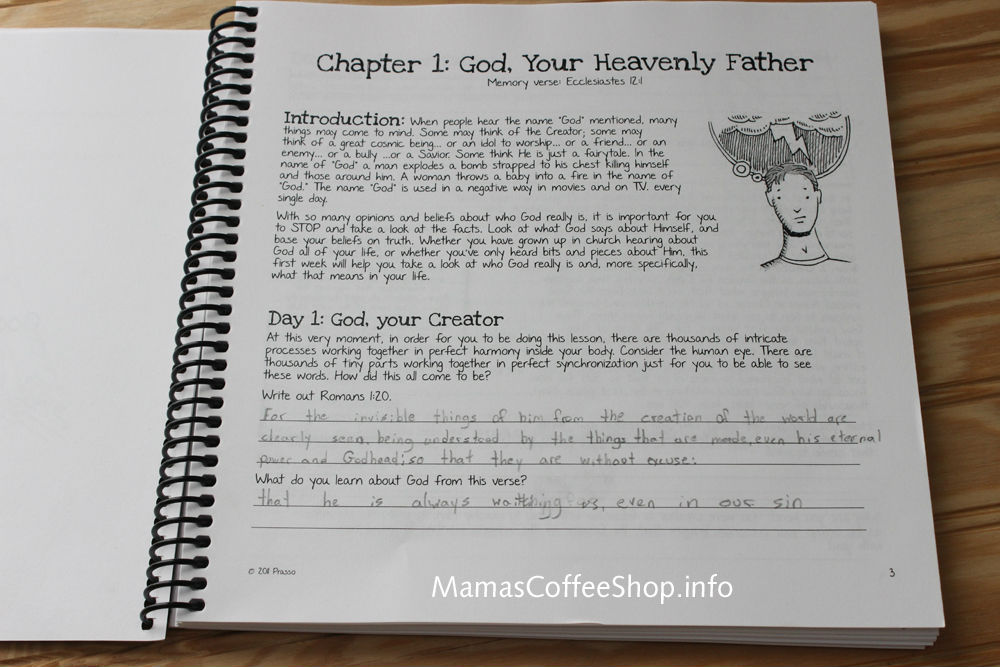 Chapter 1: God, Your Heavenly Father
Memory verse: Ecclesiastes 12:1
Introduction: When people hear the name "God" mentioned, many
things may come to mind. Some may think of the Creator; some may
think of a great cosmic being... or an idol to worship... or a friend... or an
enemy... or a bully ...or a Savior. Some think He is just a fairytale. In the
name of "God" a man explodes a bomb strapped to his chest killing himself
and those around him. A woman throws a baby into a fire in the name of
"God." The name "God" is used in a negative way in movies and on TV. every
single day.
With so many opinions and beliefs about who God really is, it is important for you
to STOP and take a look at the facts. Look at what God says about Himself, and
base your beliefs on truth. Whether you have grown up in church hearing about
God all of your life, or whether you've only heard bits and pieces about Him, this
first week will help you take a look at who God really is and, more specifically,
what that means in your life.
Day 1: God, your Creator
At this very moment, in order for you to be doing this lesson, there are thousands of intricate
processes working together in perfect harmony inside your body. Consider the human eye. There are
thousands of tiny parts working together in perfect synchronization just for you to be able to see
these words. How did this all come to be?
Write out Romans 1:20.
For the invisible things of him from the creation of the world are
clearly seen, being understood by the things that are made, even his eternal
power and Godhead; so that they are without excuse:
What do you learn about God from this verse?
that he is always us, even in our sin
© 2011 Prasso
3
MamasCoffeeShop.info